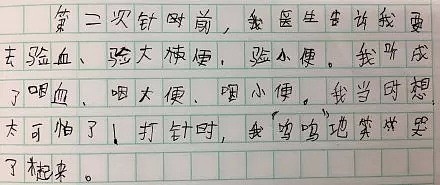 第二次针时前，我医生告诉我要
去验血、验大便、验小便。我听成
了咽血、咽大便、咽小便。我当时想，
太可怕了！打针时，我“呜呜”地笑哭
了起来。